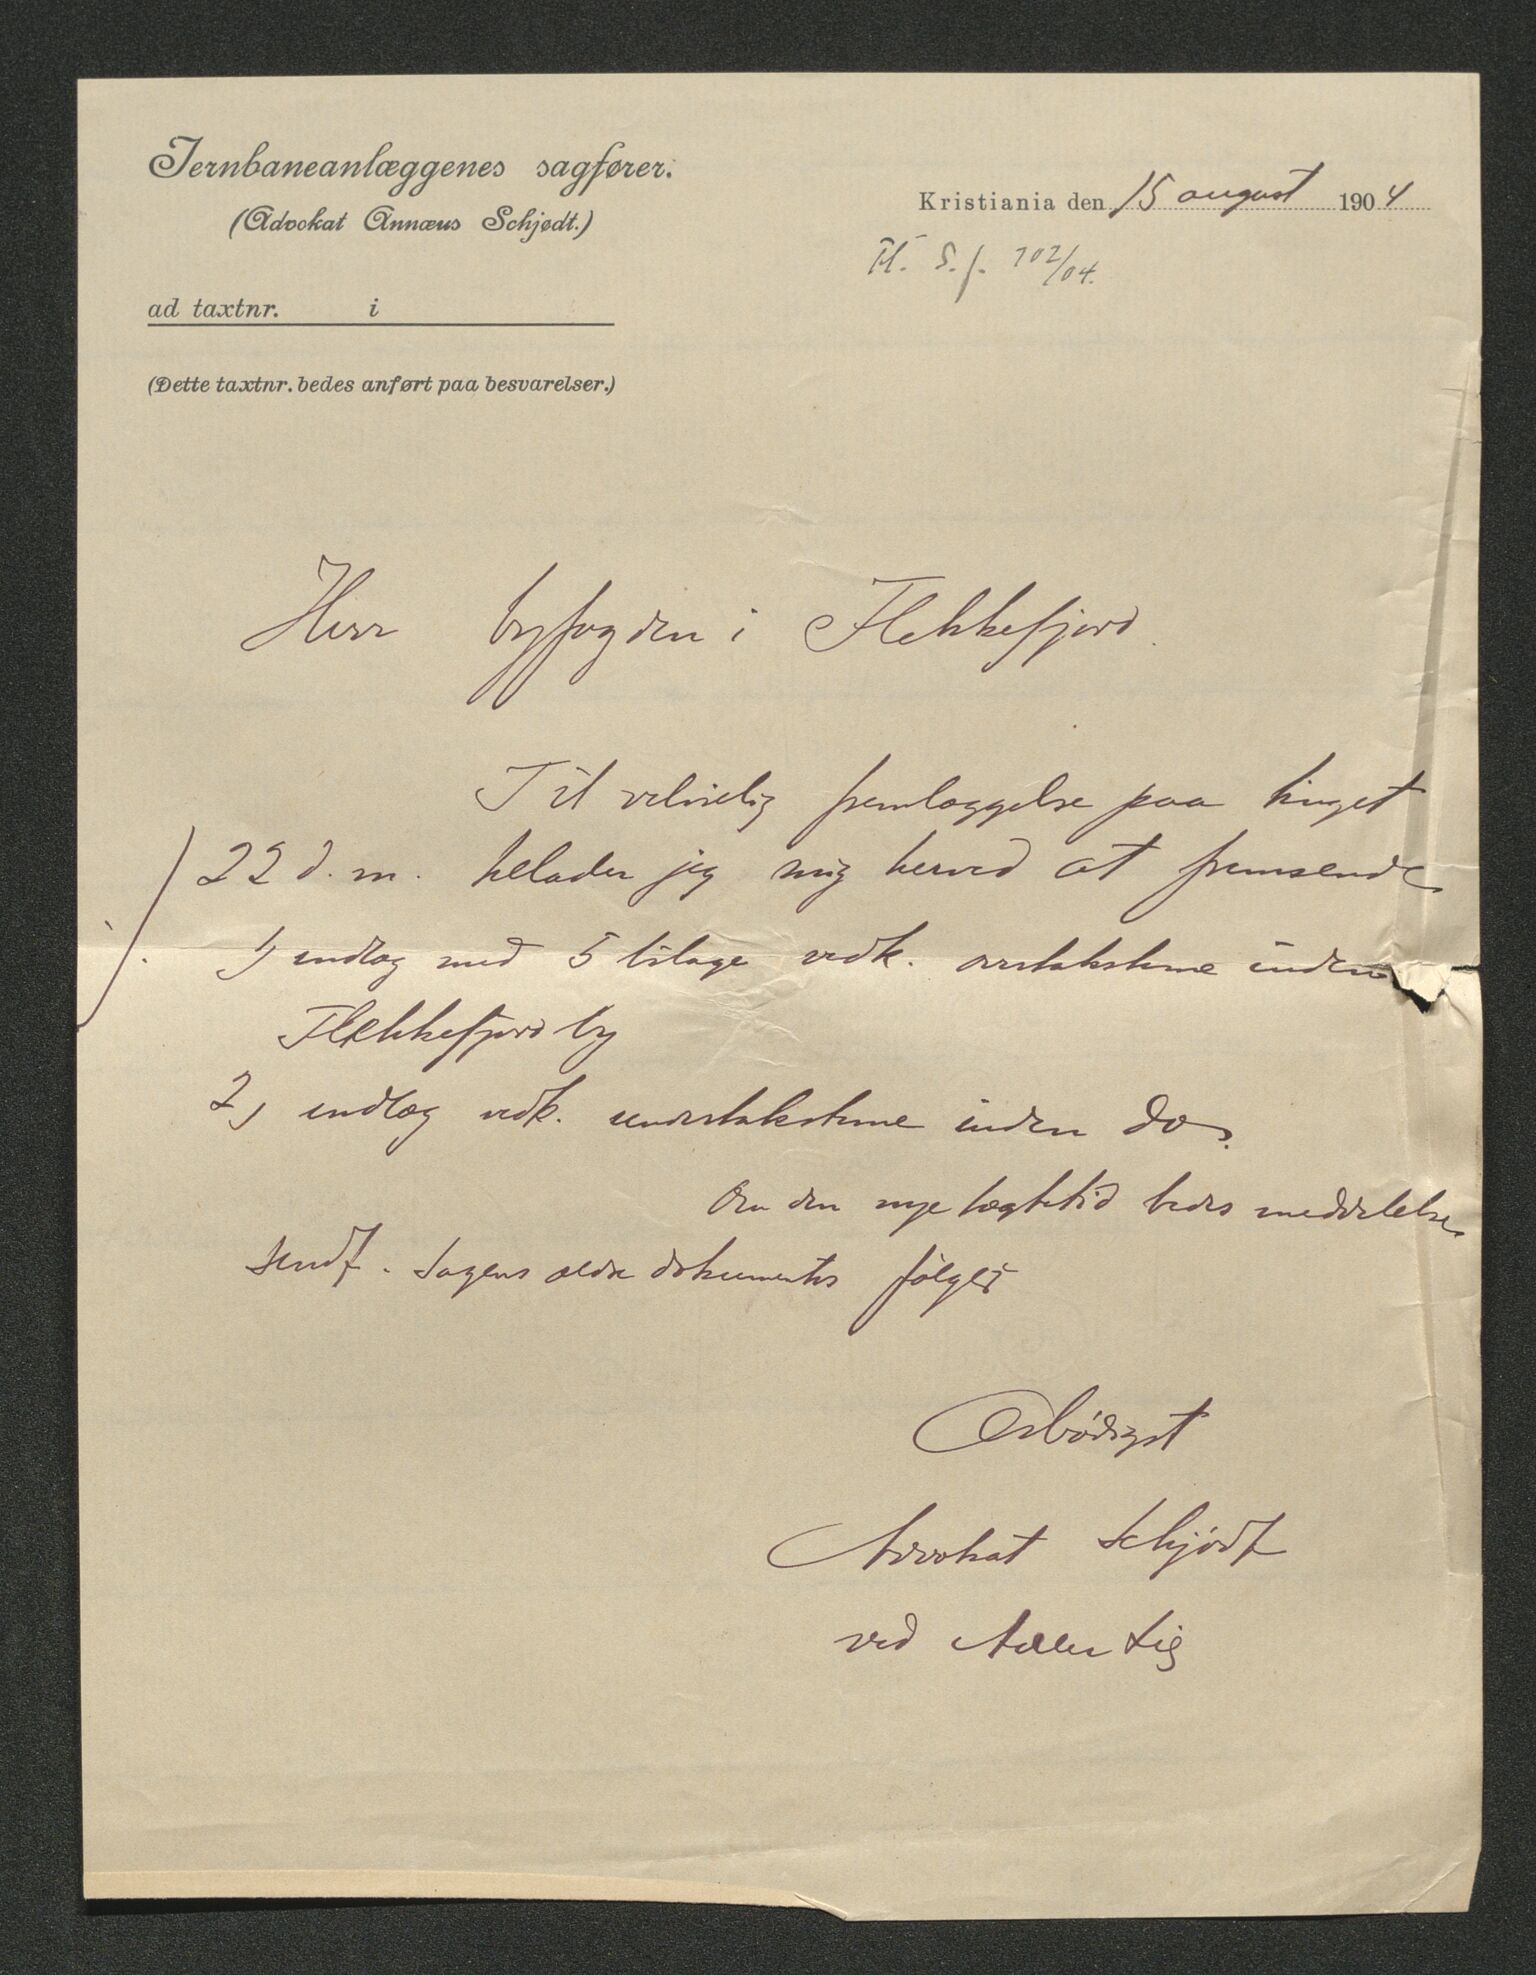 Jernbaneanlæggenes sagfører.
(Advokat Annæus Schjødt.)
Kristiania den 15 august 1904
Fl. S. f. 102/04.
ad taxtnr. i
(Dette taxtnr. bedes anført paa besvarelser.)
Herr byfogden i Flekkefjord.
Til velvielig fremlæggelse paa tinget
22 d. m. tillader jeg mig herved at fremsende
1) indlæg med 5 bilage vedk. overtaksterne inden
Flekkefjord by
2) indlæg vedk. undertaksterne inden do.
Om den nye tægtetid bedes meddelelse
sendt. Sagens ældre dokumenter følger
Ærbødigst
Advokat Schjødt
ved